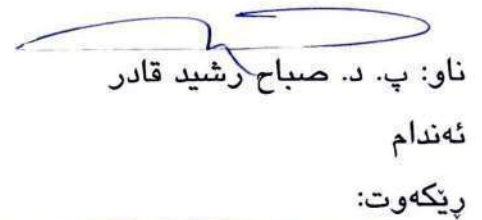 ناو: پ. د. صباح رشید قادر
ئەندام
ڕێکەوت: